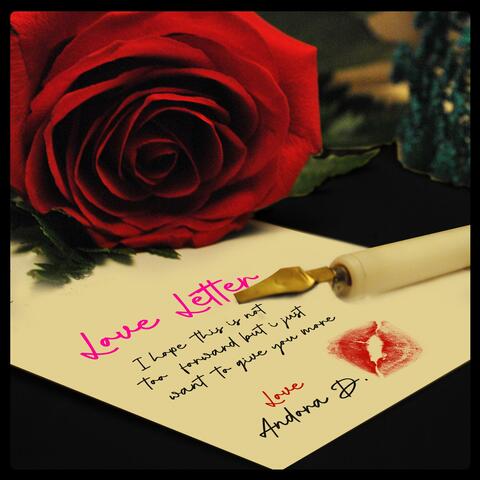 Love Letter
I hope this is not
too forward but i just
want to give you more
Love
Andora D.